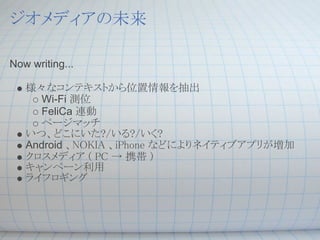 ジオメディアの未来
Now writing...
様々なコンテキストから位置情報を抽出
Wi-Fi 測位
FeliCa 連動
ページマッチ
いつ、どこにいた?/いる?/いく?
Android 、NOKIA 、iPhone などによりネイティブアプリが増加
クロスメディア ( PC → 携帯 )
キャンペーン利用
ライフロギング